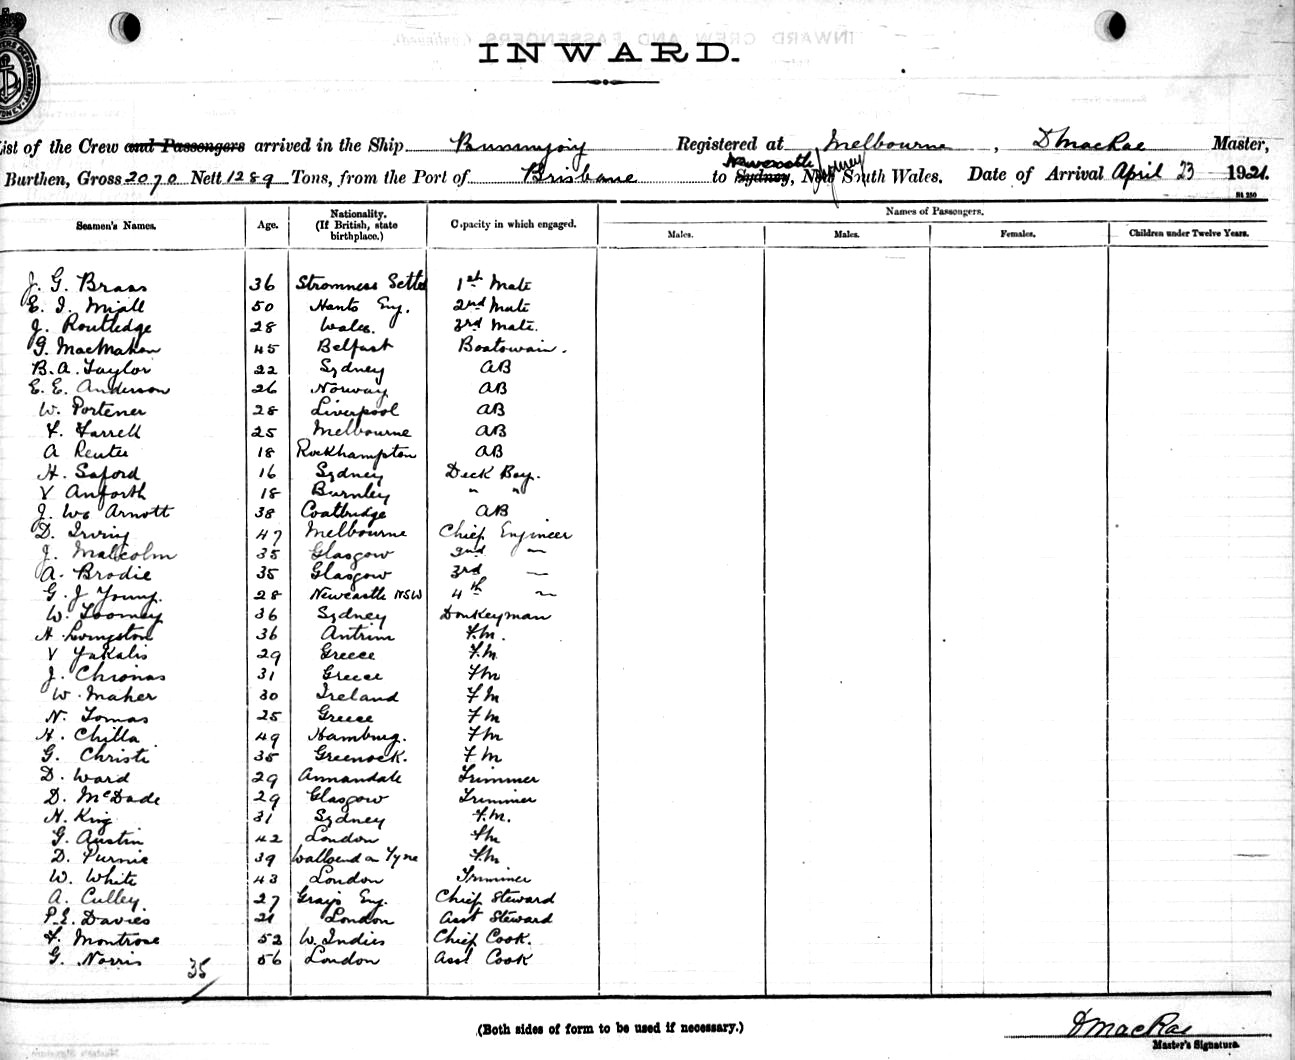 INWARD.
List of the Crew and Passengers arrived in the Ship Burrumjoiy Registered at Melbourne, D MacRae Master,
Burthen, Gross 2070 Nett 1289 Tons, from the Port of Brisbane to Sydney, Newcastle New South Wales. Date of Arrival April 23 1921.
Seamen's Names. Age. Nationality. (If British, state birthplace.) Capacity in which engaged. Names of Passengers.
Males. Males. Females. Children under Twelve Years.
J. G. Braas 36 Stromness 1st Mate
E. I. Miall 50 Hants Eng. 2nd Mate
J. Routledge 28 Wales. 3rd Mate.
G. MacMahon 45 Belfast Boatswain.
B. A. Taylor 22 Sydney AB
E. E. Anderson 26 Norway AB
W. Portener 28 Liverpool AB
F. Farrell 25 Melbourne AB
A Reuter 18 Rockhampton AB
H. Saford 16 Sydney Deck Boy.
V Anforth 18 Burnley " "
J. Wo Arnott 38 Coatbridge AB
D. Irving 47 Melbourne Chief Engineer
J. Malcolm 35 Glasgow 2nd "
A. Brodie 35 Glasgow 3rd "
G. J Young. 28 Newcastle NSW 4th "
W. Toomey 36 Sydney Donkeyman
H Livingston 36 Antrim F.M.
V Yakalis 29 Greece F.M
J. Chronas 31 Greece FM
W. Maher 30 Ireland FM
N. Tomas 25 Greece FM
H. Chilla 49 Hamburg. FM
G. Christi 35 Greenock. FM
D. Ward 29 Annandale Trimmer
D. McDade 29 Glasgow Trimmer
H. King 31 Sydney F.M.
G. Austin 42 London FM
D. Purnie 39 Wallsend on Tyne F.M
W. White 43 London Trimmer
A. Culley. 27 Grays Eng. Chief Steward
P. E. Davies 21 London Asst Steward
F. Montrose 52 W. Indies Chief Cook.
G. Norris 56 London Asst Cook
35
(Both sides of form to be used if necessary.)
D MacRae
Master's Signature.